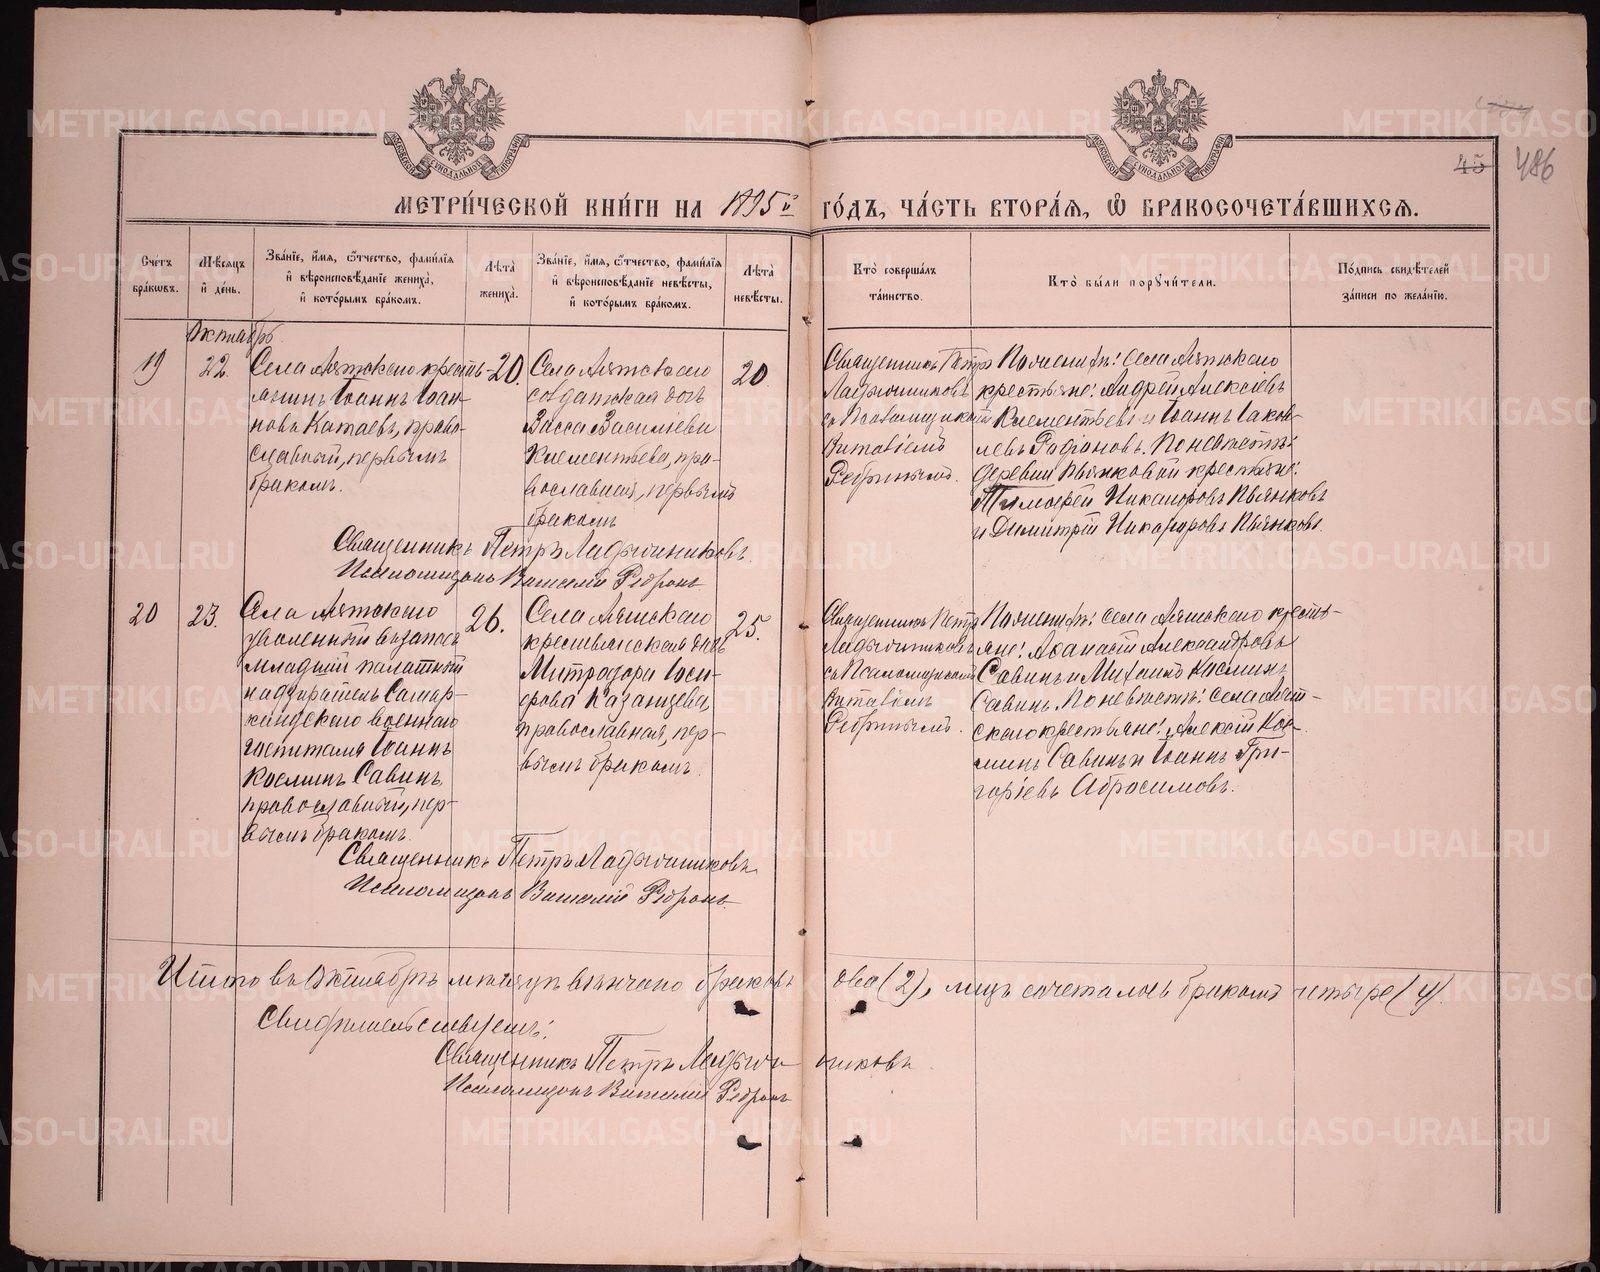 МЕТРИ́ЧЕСКОЙ КНИ́ГИ НА 1895й ГО́ДЪ, ЧА́СТЬ ВТОРА́Я, Ѡ҆ БРАКОСОЧЕТА́ВШИХСЯ.
45 486
МОСКОВСКОЙ СѴНОДАЛЬНОЙ ТИПОГРАФІИ
МОСКОВСКОЙ СѴНОДАЛЬНОЙ ТИПОГРАФІИ
Сче́тъ
бра́ковъ.
Мѣ́сяцъ
и҆ де́нь.
Зва́нїе, и҆́мя, ѻ҆́тчество, фами́лїя
и҆ вѣроисповѣ́данїе жениха̀,
и҆ кото́рымъ бра́комъ.
Лѣ́та
жениха̀.
Зва́нїе, и҆́мя, ѻ҆́тчество, фами́лїя
и҆ вѣроисповѣ́данїе невѣ́сты,
и҆ кото́рымъ бра́комъ.
Лѣ́та
невѣ́сты.
Кто̀ соверша́лъ
та́инство.
Кто̀ бы́ли порꙋчи́тели.
По́дпись свидѣ́телей
за́писи по жела́нїю.
Октябрь.
19
22.
Села Аятскаго кресть-
янинъ Іоаннъ Іоан-
новъ Катаевъ, право-
славный, первымъ
бракомъ.
20.
Села Аятскаго
солдатская дочь
Васса Васильева
Клементьева, пра-
вославная, первымъ
бракомъ
20
Священникъ Петръ
Ладыжниковъ
съ Псаломщикомъ
Виталіемъ
Ребринымъ.
По женихѣ: села Аятскаго
крестьяне: Андрей Алексѣевъ
Клементьевъ и Іоаннъ Іаков-
левъ Родіоновъ. По невѣстѣ:
деревни Пьянковой крестьяне:
Тимофей Никаноровъ Пьянковъ
и Димитрій Никаноровъ Пьянковъ.
Священникъ Петръ Ладыжниковъ.
Псаломщикъ Виталій Ребринъ
20
23.
Села Аятскаго
уволенный въ запасъ
младшій палатный
надзиратель Самар-
кандскаго военнаго
госпиталя Іоаннъ
Косминъ Савинъ,
православный, пер-
вымъ бракомъ.
26.
Села Аятскаго
крестьянская дочь
Митродора Іоси-
фова Казанцева,
православная, пер-
вымъ бракомъ.
25.
Священникъ Петръ
Ладыжниковъ
съ Псаломщикомъ
Виталіемъ
Ребринымъ.
По женихѣ: села Аятскаго кресть-
яне: Афанасій Александровъ
Савинъ и Михаилъ Косминъ
Савинъ. По невѣстѣ: села Аят-
скаго крестьяне: Алексѣй Кос-
минъ Савинъ и Іоаннъ Гри-
горіевъ Абросимовъ.
Священникъ Петръ Ладыжниковъ
Псаломщикъ Виталій Ребринъ.
Итого въ Октябрѣ мѣсяцѣ вѣнчано браковъ два (2), лицъ сочеталось бракомъ четыре (4).
Свидѣтельствуемъ:
Священникъ Петръ Ладыжниковъ.
Псаломщикъ Виталій Ребринъ
METRIKI.GASO-URAL.RU